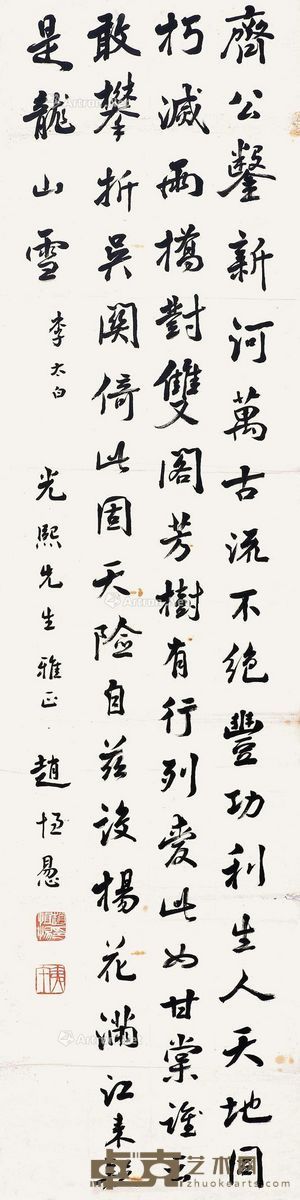 齊公鑿新河萬古流不絕豐功利生人天地同
朽滅兩橋對雙閣芳樹有行列愛此如甘棠誰
敢攀折吳關倚此固天險自茲設楊花滿江來
是龍山雪 李太白
光熙先生雅正 趙恆惕
卓克艺术网